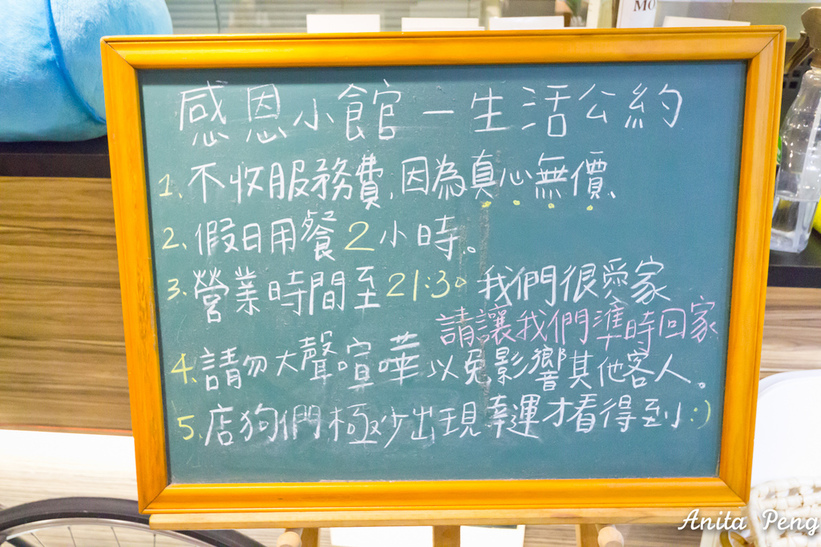 MO
感恩小館－生活公約
1.不收服務費,因為真心無價、
2.假日用餐2小時。
3.營業時間至21:30 我們很愛家
請讓我們準時回家
4.請勿大聲喧嘩以免影響其他客人。
5.店狗們極少出現幸運才看得到:)
Anita Peng